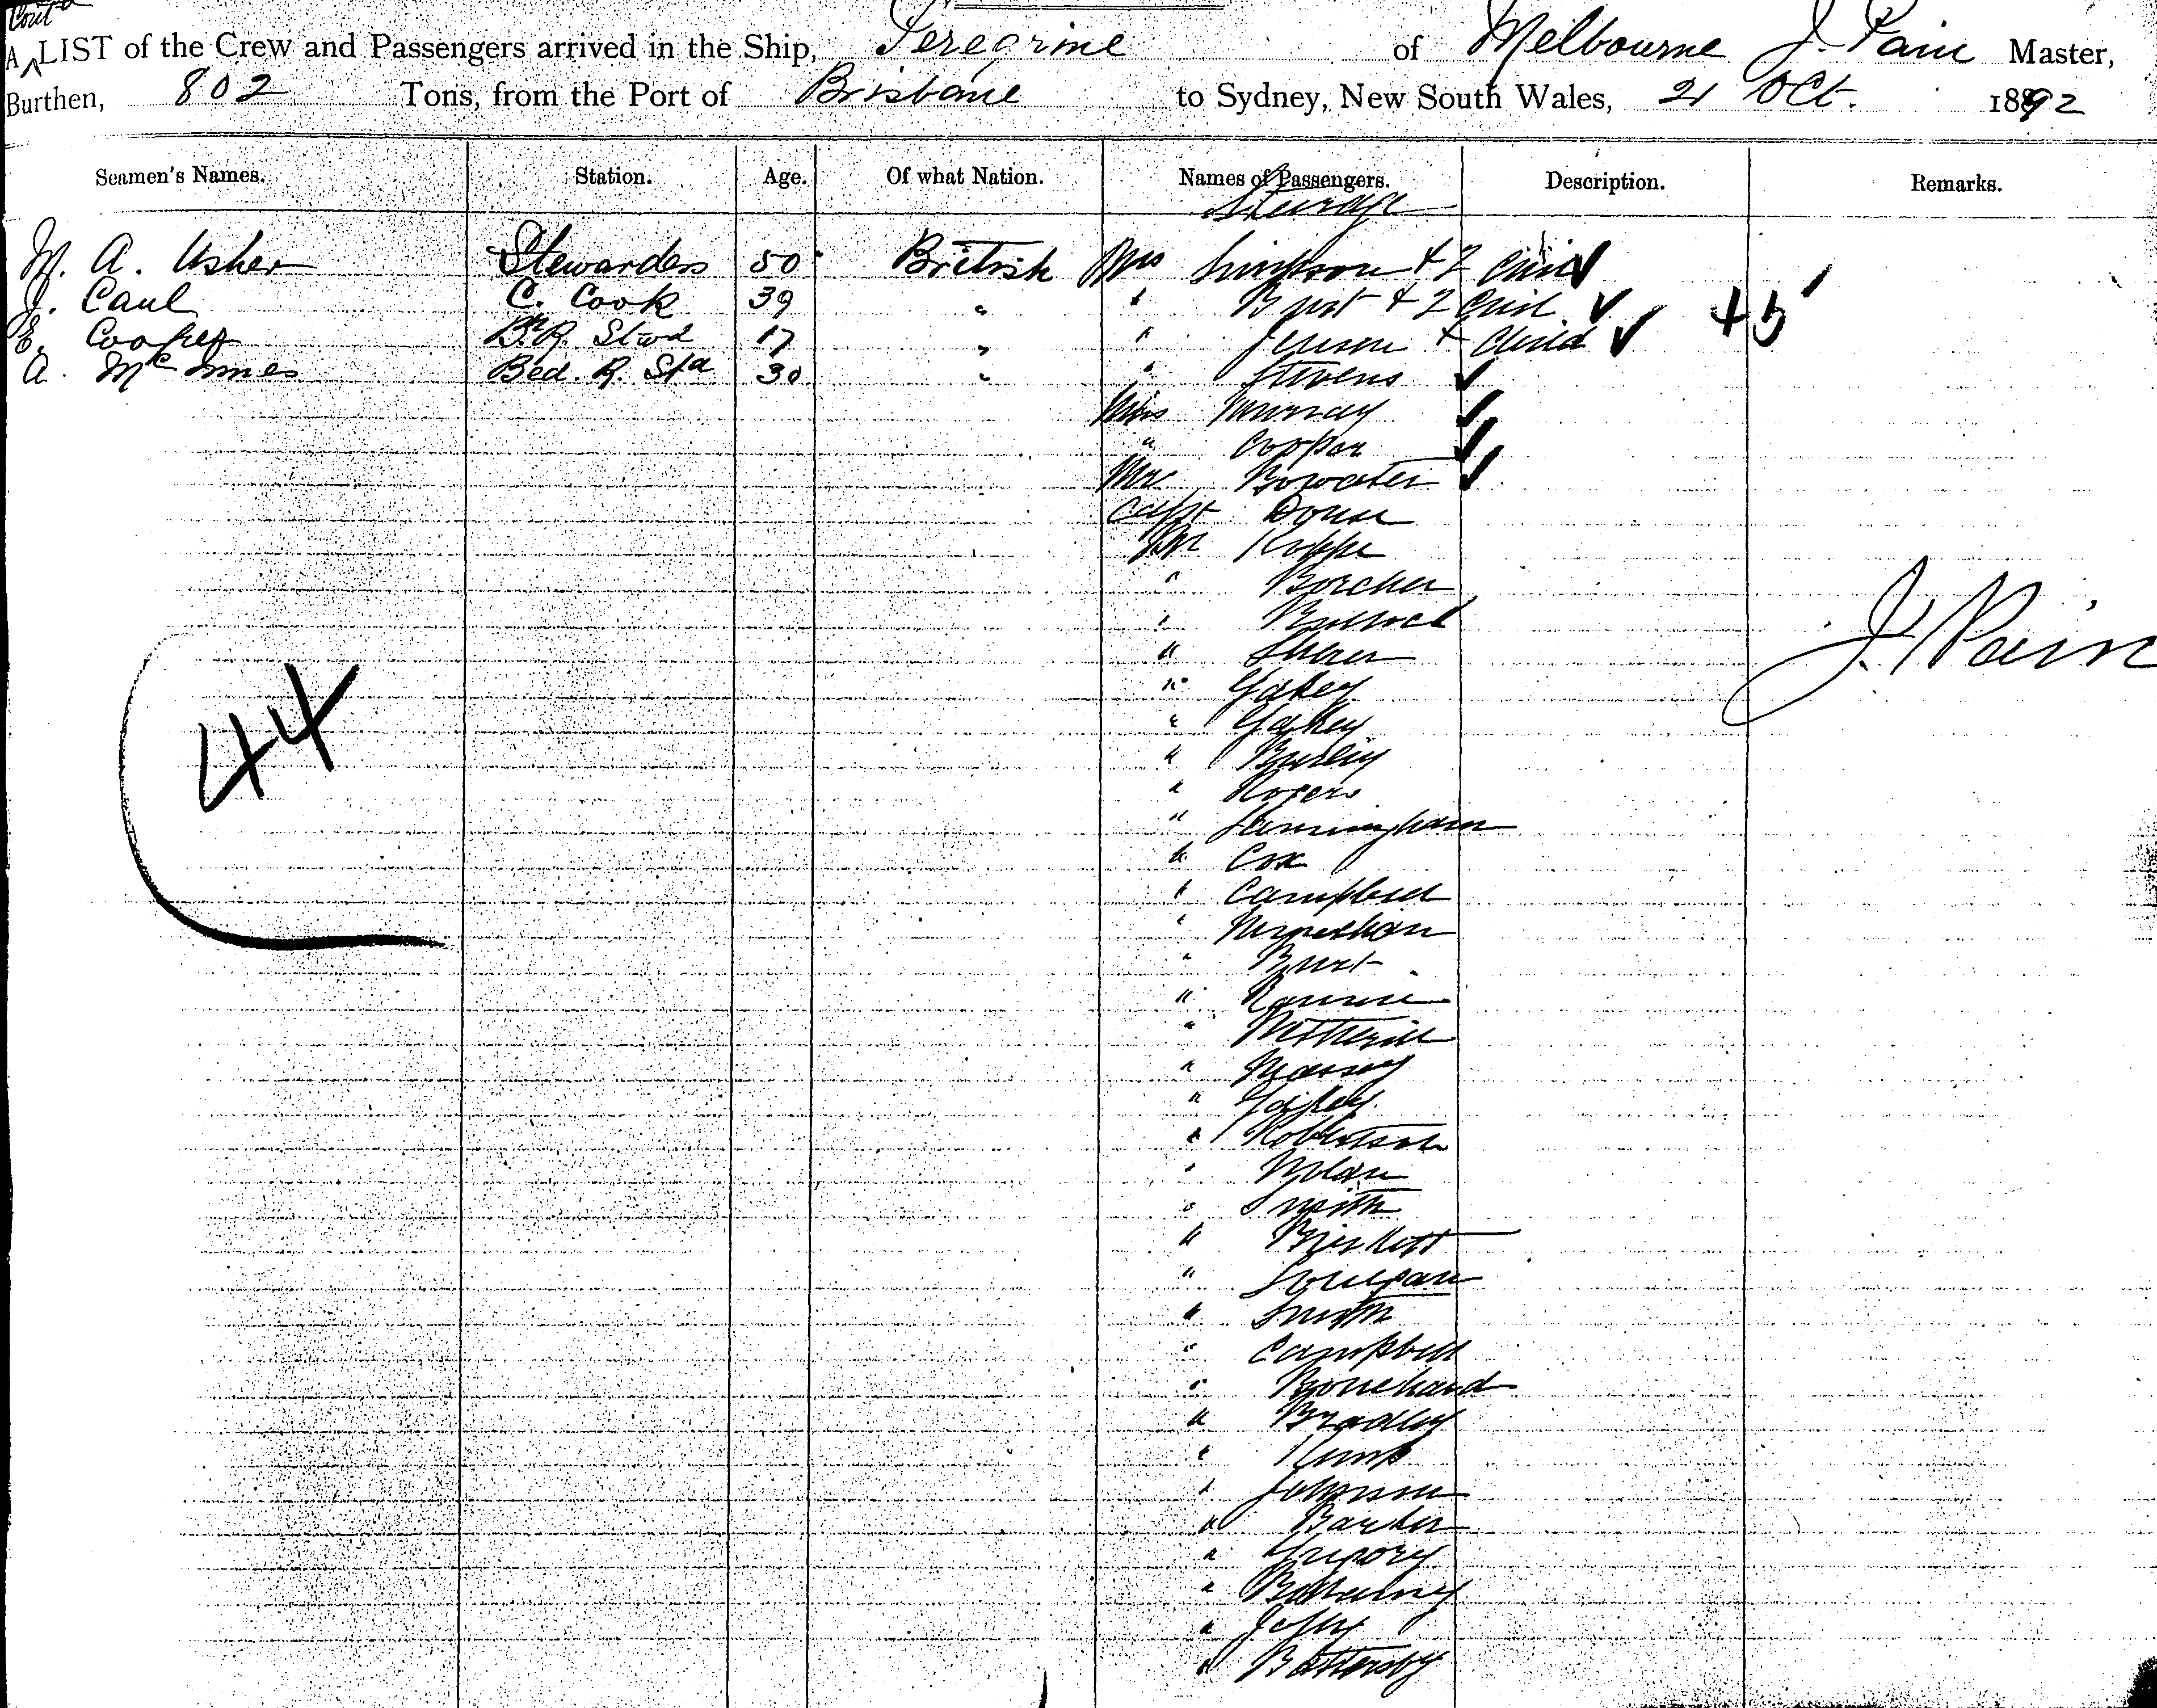 Cont'd
A LIST of the Crew and Passengers arrived in the Ship, Peregrine of Melbourne J. Pain Master,
Burthen, 802 Tons, from the Port of Brisbane to Sydney, New South Wales, 21 Oct. 1892
Seamen's Names. Station. Age. Of what Nation. Names of Passengers. Description. Remarks.
Steerage
M. A. Usher Stewardess 50 British Mrs Simpson + 2 Chil
J. Caul C. Cook 39 " " Burt + 2 Chil
E. Cooper B. R. Stwd 17 " " Jenson + Child + 5
A. McInnes Bed. R. Std 30 " " Stevens
Miss Murray
" Cooper
Mr Bowater
Capt
Mr Koppe
" Borcher
" Bullock
"
" Gakey
" Gakey
"
" Rogers
"
" Cox
" Campbell
"
" Burt
" Rannie
" Petherill
" Massey
"
" Robertson
" Nolan
" Smith
"
"
" Smith
" Campbell
" Bouchard
" Bradley
" Kemp
" Johnson
" Barker
" Gregory
"
" Jeffry
" Battersby
J. Pain
44